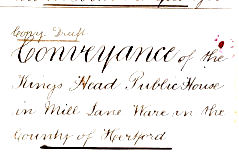 Copy Draft
Conveyance of the
Kings Head Public House
in Mill Lane Ware in the
County of Hertford